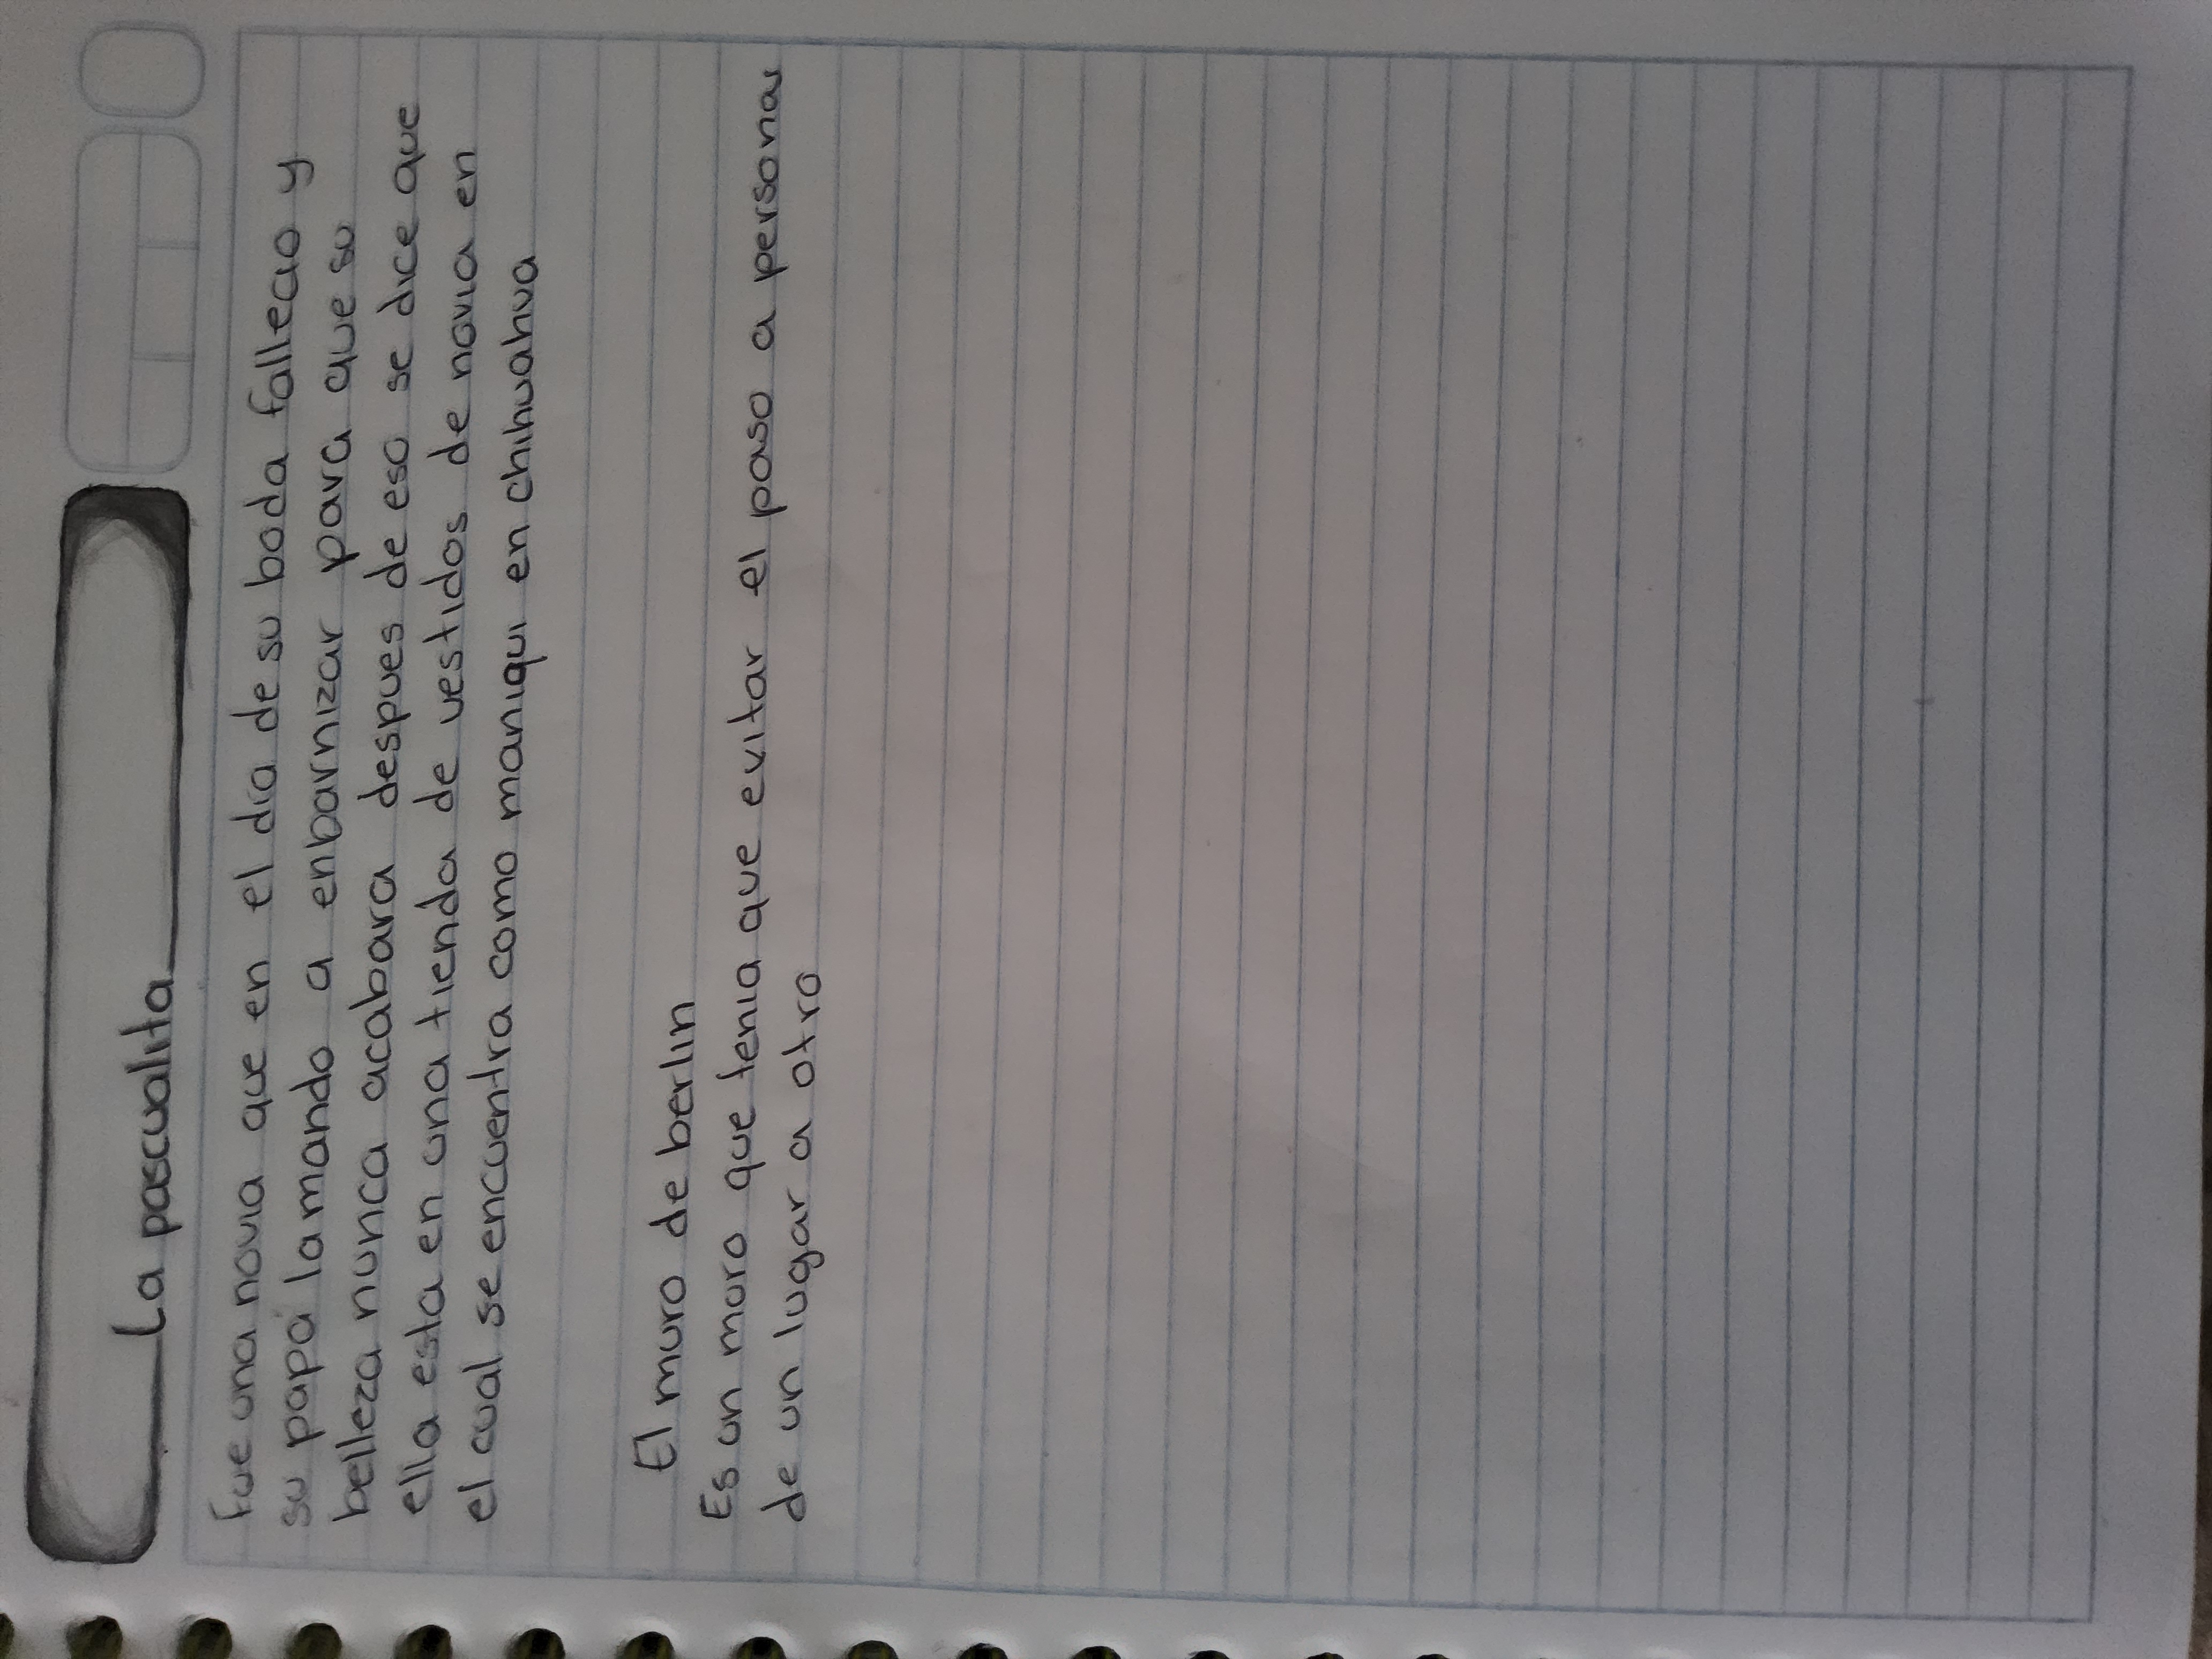 La pascualita
Fue una novia que en el día de su boda fallecio y
su papá la mando a enbarnizar para que su
belleza nunca acabara despues de eso se dice que
ella esta en una tienda de vestidos de novia en
el cual se encuentra como maniqui en chihuahua
El muro de berlin
Es un muro que tenia que evitar el paso a persona
de un lugar a otro